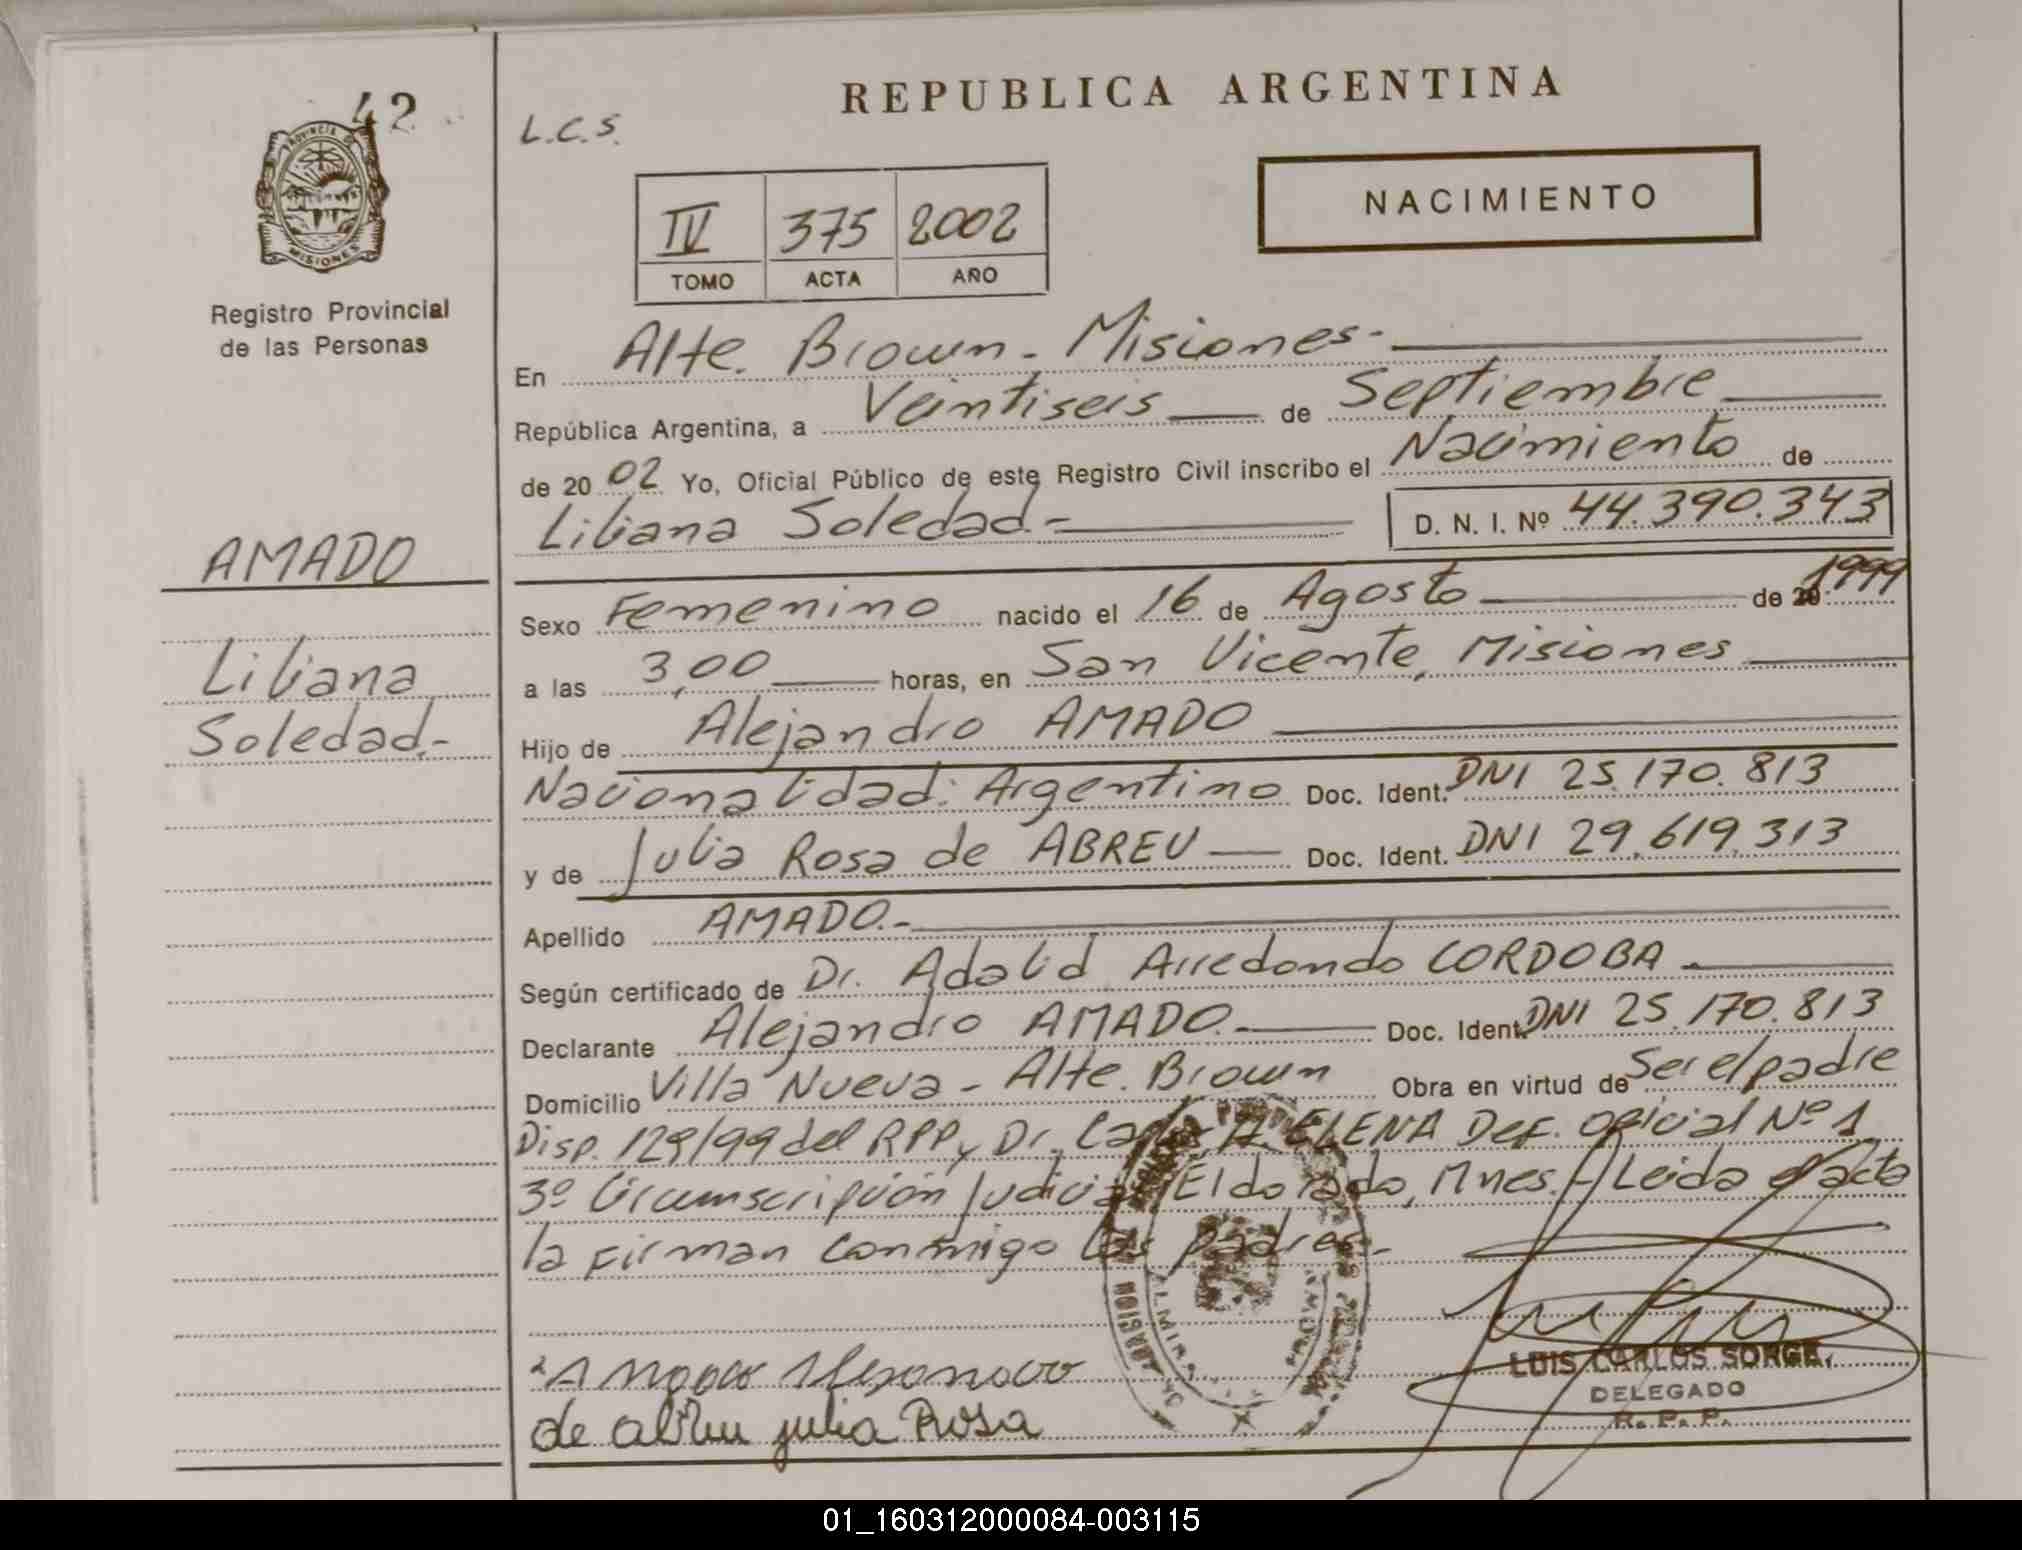 42
PROVINCIA DE
MISIONES
Registro Provincial
de las Personas
AMADO
Liliana
Soledad.-
L.C.S.
REPUBLICA ARGENTINA
IV 375 2002
TOMO ACTA AÑO
NACIMIENTO
En Alte. Brown - Misiones-
República Argentina, a Veintiseis de Septiembre
de 20 02 Yo, Oficial Público de este Registro Civil inscribo el Nacimiento de
Liliana Soledad.- D. N. I. Nº 44.390.343
Sexo Femenino nacido el 16 de Agosto de 20 1999
a las 3,00 horas, en San Vicente, Misiones
Hijo de Alejandro AMADO
Nacionalidad: Argentino Doc. Ident. DNI 25.170.813
y de Julia Rosa de ABREU Doc. Ident. DNI 29.619.313
Apellido AMADO.-
Según certificado de Dr. Adalid Arredondo CORDOBA
Declarante Alejandro AMADO.- Doc. Ident. DNI 25.170.813
Domicilio Villa Nueva - Alte. Brown Obra en virtud de Ser el padre
Disp. 129/99 del RPP y Dr. A. ELENA Def. Oficial Nº 1
3º Circunscripción Judicial Eldorado, Mnes.- Leida el acta
la firman conmigo los padres.-
LUIS CARLOS SORGE
DELEGADO
R. P. P.
de abreu julia Rosa
01_160312000084-003115